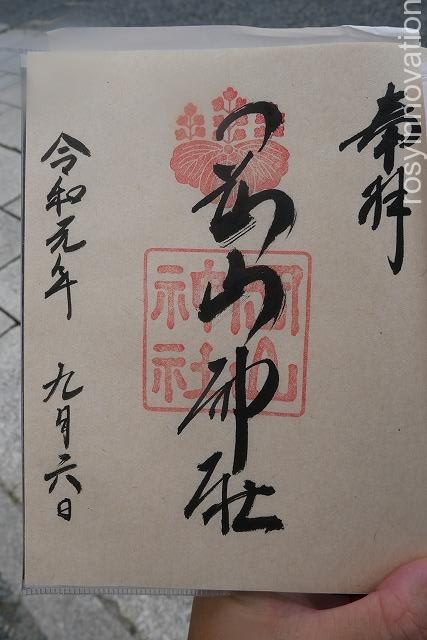 奉拝
岡山神社
岡山
神社
令和元年 九月六日
rosyinnovation